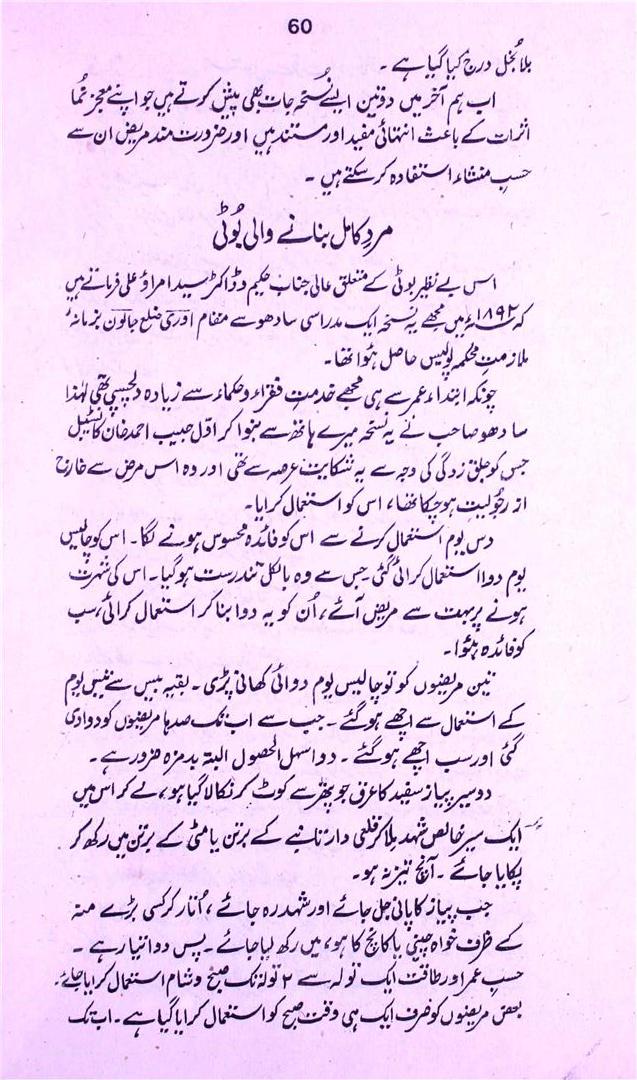 60
بلا بخل درج کیا گیا ہے ۔
اب ہم آخر میں دو تین ایسے نسخہ جات بھی پیش کرتے ہیں جو اپنے معجز نما
اثرات کے باعث انتہائی مفید اور مستند ہیں اور ضرورت مند مریض ان سے
حسبِ منشاء استفادہ کر سکتے ہیں ۔
مردِ کامل بنانے والی بُوٹی
اس بے نظیر بوٹی کے متعلق عالی جناب حکیم و ڈاکٹر سید امراؤ علی فرماتے ہیں
کہ ۱۸۹۲ء میں مجھے یہ نسخہ ایک مدراسی سادھو سے مقام اوری ضلع جالون بزمانہ
ملازمت محکمہ پولیس حاصل ہؤا تھا۔
چونکہ ابتداء عمر سے ہی مجھے خدمتِ فقراء و حکماء سے زیادہ دلچسپی تھی لہٰذا
سادھو صاحب نے یہ نسخہ میرے ہاتھ سے بنوا کر اول حبیب احمد خان کانسٹیبل
جس کو جلق زدگی کی وجہ سے یہ شکایت عرصہ سے تھی اور وہ اس مرض سے خارج
از رجُولیت ہو چکا تھا، اس کو استعمال کرایا۔
دس یوم استعمال کرنے سے اس کو فائدہ محسوس ہونے لگا۔ اس کو چالیس
یوم دوا استعمال کرائی گئی جس سے وہ بالکل تندرست ہو گیا۔ اس کی شہرت
ہونے پر بہت سے مریض آئے، اُن کو یہ دوا بنا کر استعمال کرائی، سب
کو فائدہ ہؤا۔
تین مریضوں کو تو چالیس یوم دوائی کھانی پڑی۔ بقیہ بیس سے تیس یوم
کے استعمال سے اچھے ہو گئے۔ جب سے اب تک صدہا مریضوں کو دوا دی
گئی اور سب اچھے ہو گئے ۔ دوا سہل الحصول البتہ بدمزہ ضرور ہے ۔
دو سیر پیاز سفید کا عرق جو پتھر سے کوٹ کر نکالا گیا ہو، لے کر اس میں
ایک سیر خالص شہد ملا کر قلعی دار تانبے کے برتن یا مٹی کے برتن میں رکھ کر
پکایا جائے ۔ آنچ تیز نہ ہو۔
جب پیاز کا پانی جل جائے اور شہد رہ جائے ، اُتار کر کسی بڑے منہ
کے ظرف خواہ چینی یا کانچ کا ہو، میں رکھ لیا جائے ۔ پس دوا تیار ہے ۔
حسبِ عمر اور طاقت ایک تولہ سے ۲ تولہ تک صبح و شام استعمال کرایا جائے۔
بعض مریضوں کو صرف ایک ہی وقت صبح کو استعمال کرایا گیا ہے ۔ اب تک